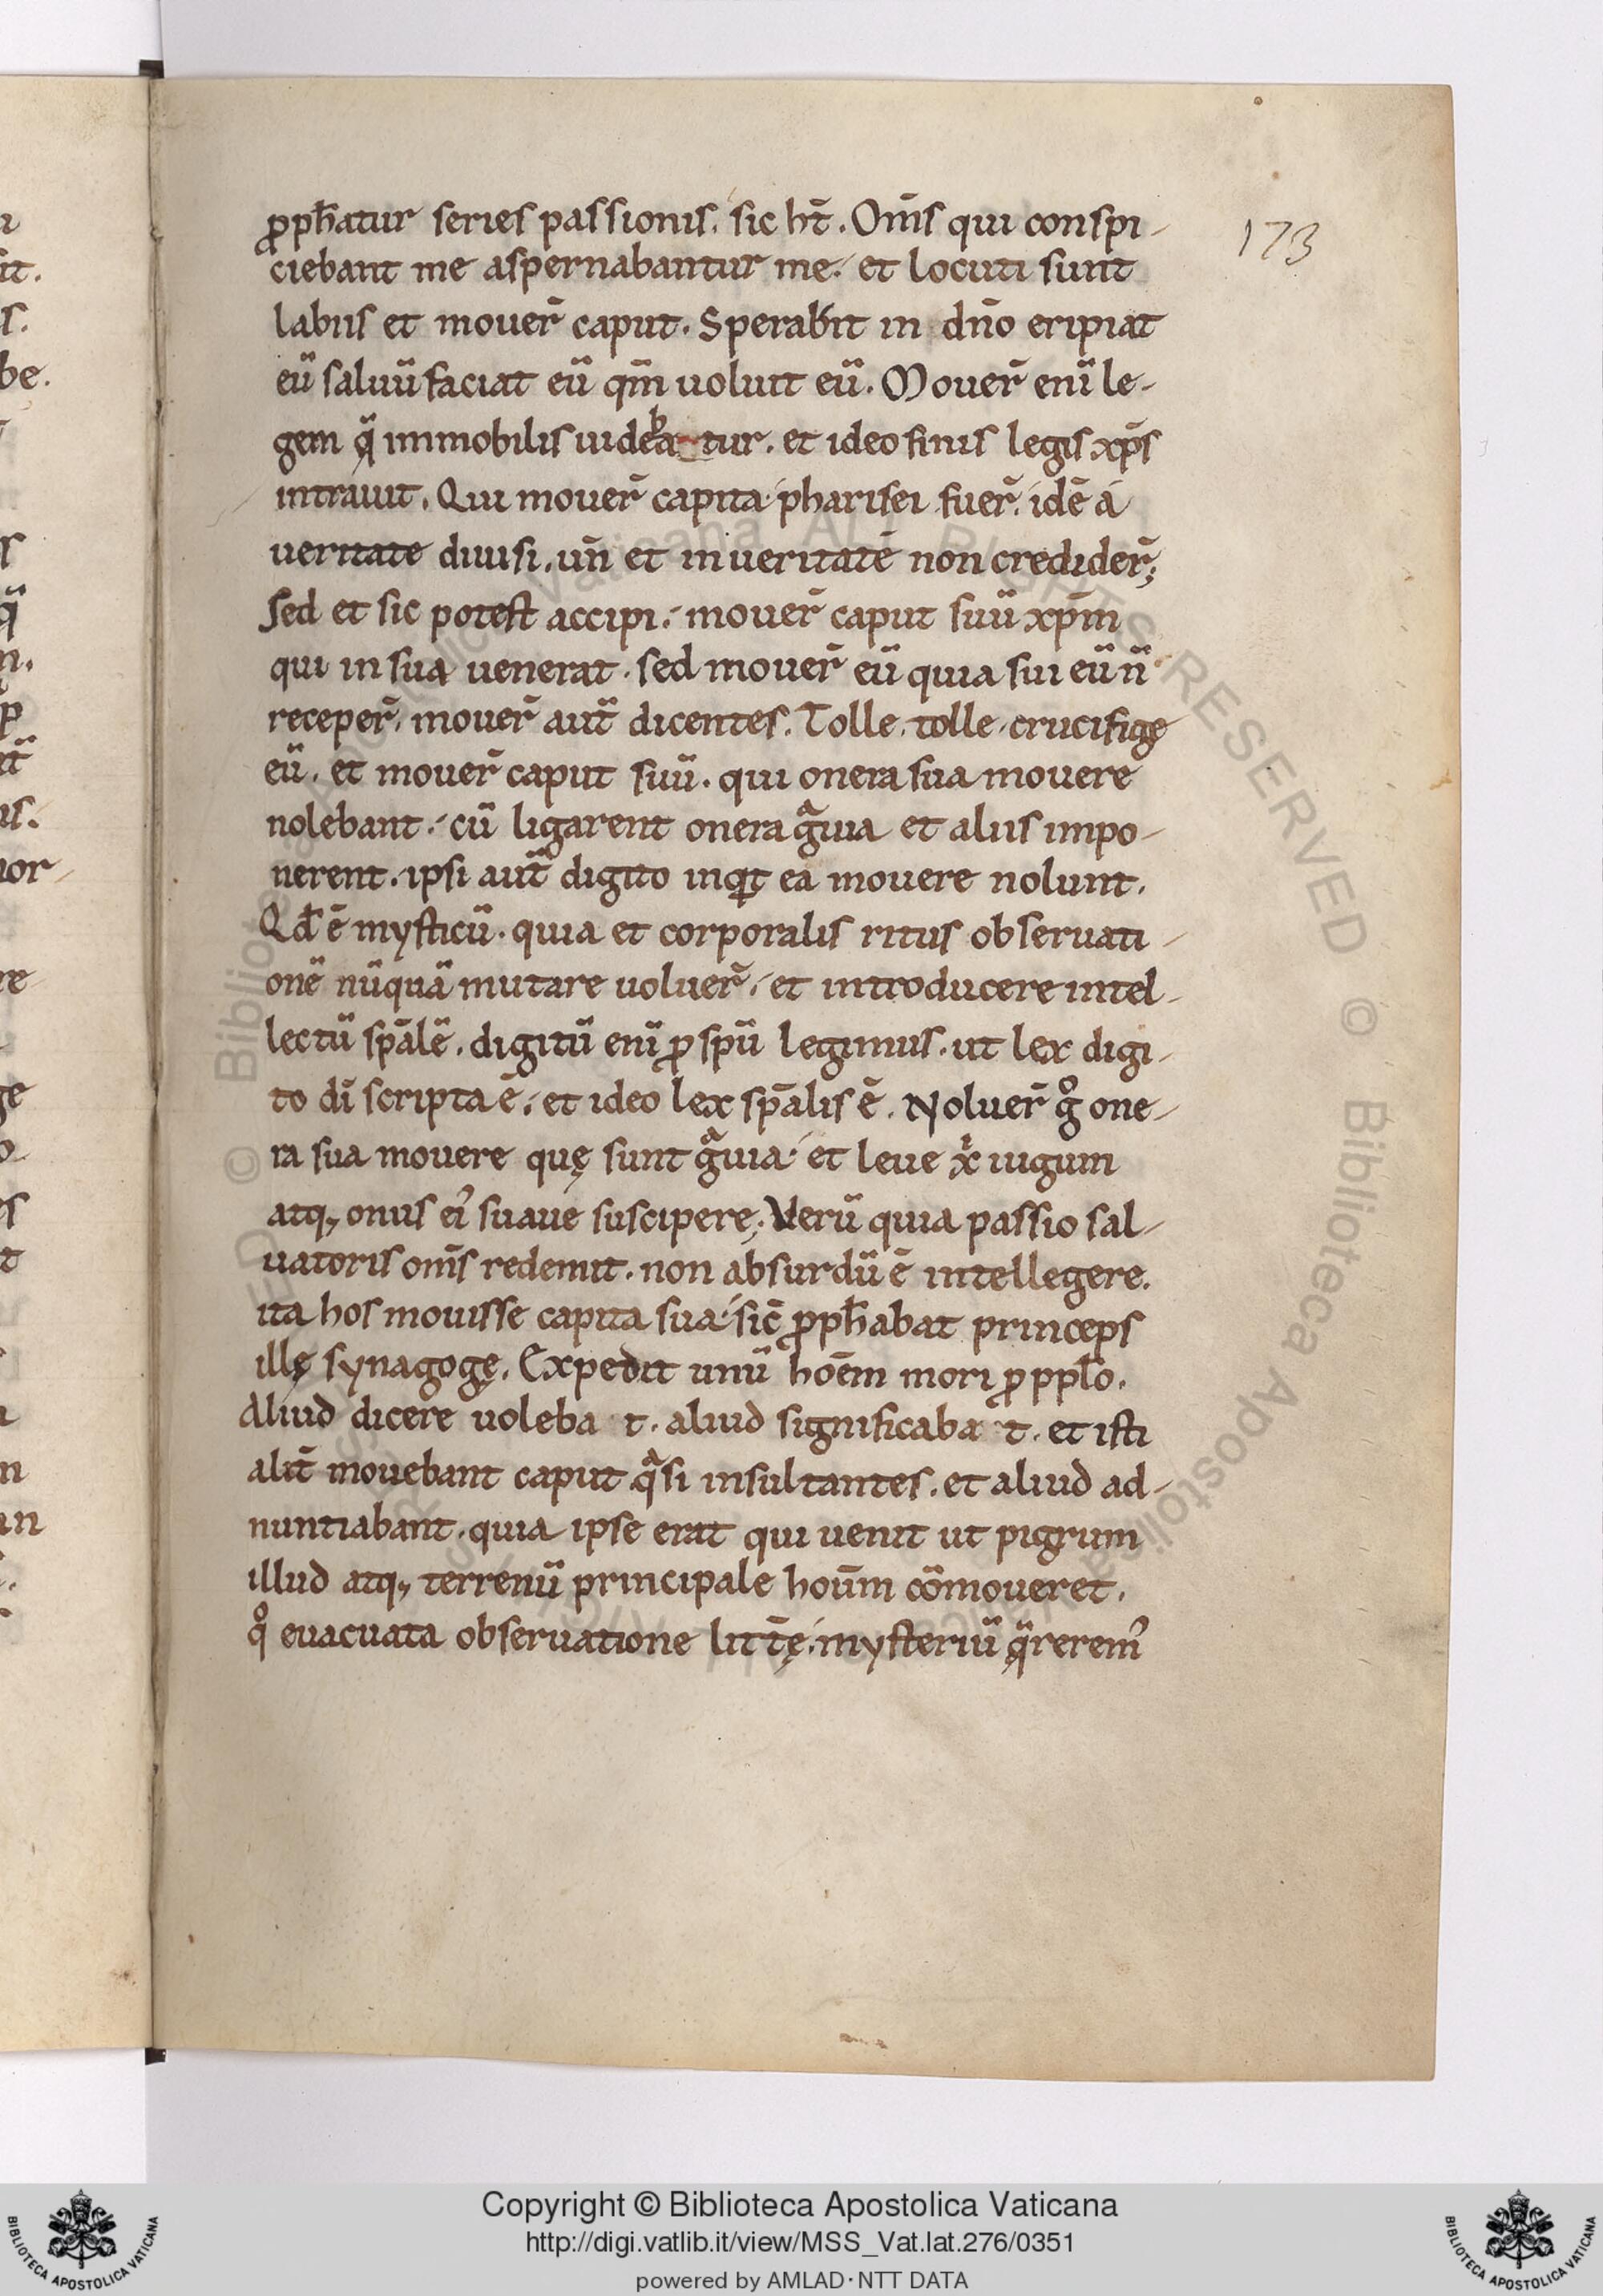 ꝓph̄atur series passionis. sic ht̄. Om̄s qui conspi-
ciebant me aspernabantur me. et locuti sunt
labiis et mouer̄ caput. Sperabit in dn̄o eripiat
eū saluū faciat eū qm̄ uoluit eū. Mouer̄ enī le-
gem q̄ immobilis uidebatur. et ideo finis legis xp̄s
intrauit. Qui mouer̄ capita pharisei fuer̄. idē a
ueritate diuisi. un̄ et in ueritatē non credider̄;
Sed et sic potest accipi. mouer̄ caput suū xp̄m
qui in sua uenerat. sed mouer̄ eū quia sui eū n̄
receper̄. mouer̄ aut̄ dicentes. Tolle. tolle. crucifige
eū. et mouer̄ caput suū. qui onera sua mouere
nolebant. cū ligarent onera gͣuia et aliis impo-
nerent. ipsi aut̄ digito inqͥt ea mouere nolunt.
Qd̄ ē mysticū. quia et corporalis ritus obseruati-
onē nūquā mutare uoluer̄. et introducere intel-
lectū sp̄alē. digitū enī ꝓ spū legimus. ut lex digi-
to dī scripta ē. et ideo lex sp̄alis ē. Noluer̄ gͦ one-
ra sua mouere quę sunt gͣuia. et leue xͥ iugum
atq; onus eiꝰ suaue suscipere. Verū quia passio sal-
uatoris om̄s redemit. non absurdū ē intellegere.
ita hos mouisse capita sua. sic̄ ꝓph̄abat princeps
illę synagogę. Expedit unū hoēm mori ꝓ pplo.
Aliud dicere uoleba t. aliud significaba t. et isti
alit̄ mouebant caput qͣsi insultantes. et aliud ad-
nuntiabant. quia ipse erat qui uenit ut pigrum
illud atq; terrenū principale hoūm cōmoueret.
qͦ euacuata obseruatione litt̄ę. mysteriū q̄reremꝰ
173
© Biblioteca Apostolica Vaticana ALL RIGHTS RESERVED © Biblioteca Apostolica Vaticana ALL RIGHTS RESERVED
Copyright © Biblioteca Apostolica Vaticana
http://digi.vatlib.it/view/MSS_Vat.lat.276/0351
powered by AMLAD·NTT DATA
BIBLIOTECA APOSTOLICA VATICANA
BIBLIOTECA APOSTOLICA VATICANA